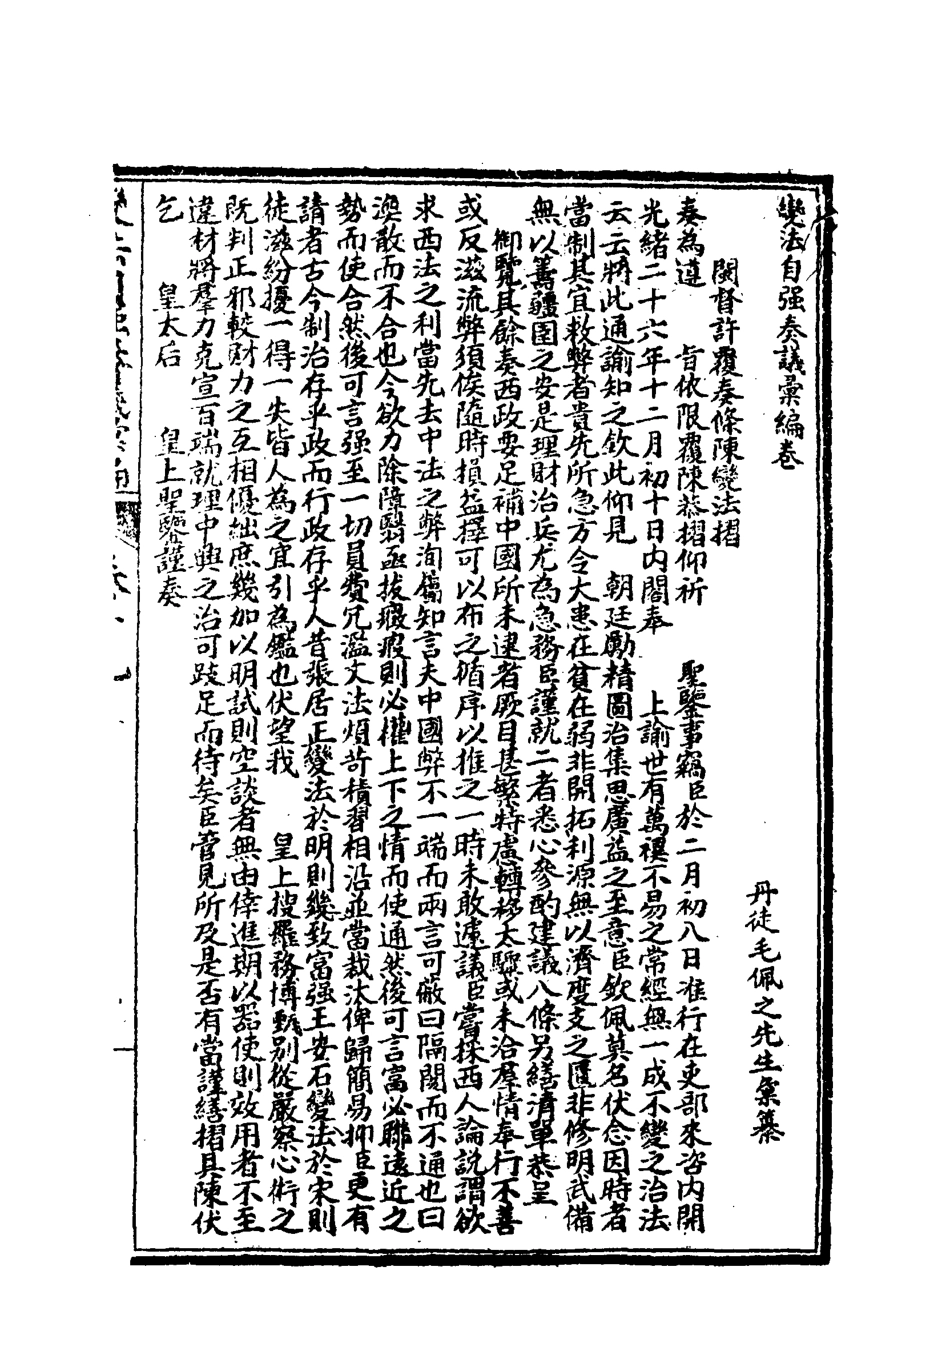 變法自强奏議彙編卷
丹徒毛佩之先生彙纂
閩督許覆奏條陳變法摺
奏為遵　旨依限覆陳恭摺仰祈　聖鑒事竊臣於二月初八日准行在吏部來咨內開
光緒二十六年十二月初十日內閣奉　上諭世有萬禩不易之常經無一成不變之治法
云云將此通諭知之欽此仰見　朝廷勵精圖治集思廣益之至意臣欽佩莫名伏念因時者
當制其宜救弊者貴先所急方今大患在貧在弱非開拓利源無以濟度支之匱非修明武備
無以籌疆圉之安是理財治兵尤為急務臣謹就二者悉心參酌建議八條另繕清單恭呈
御覽其餘奏西政要足補中國所未逮者厥目甚繁特慮轉移太驟或未洽羣情奉行不善
或反滋流弊須俟隨時損益擇可以布之循序以推之一時未敢遽議臣嘗採西人論說謂欲
求西法之利當先去中法之弊洵儻知言夫中國弊不一端而兩言可蔽曰隔閡而不通也曰
渙散而不合也今欲力除障翳亟拔瑕疵則必權上下之情而使通然後可言富必聯遠近之
勢而使合然後可言强至一切員費冗濫文法煩苛積習相沿並當裁汰俾歸簡易抑臣更有
請者古今制治存乎政而行政存乎人昔張居正變法於明則幾致富强王安石變法於宋則
徒滋紛擾一得一失皆人為之宜引為鑑也伏望我　皇上搜羅務博甄別從嚴察心術之
阮判正邪較財力之互相優絀庶幾加以明試則空談者無由倖進期以器使則效用者不至
違材將羣力克宣百端就理中興之治可跂足而待矣臣管見所及是否有當謹繕摺具陳伏
乞　皇太后　皇上聖鑒謹奏